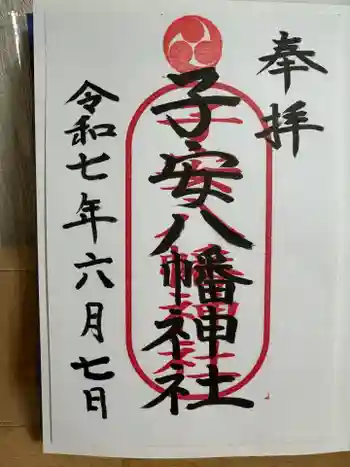 奉拝
子安八幡神社
令和七年六月七日